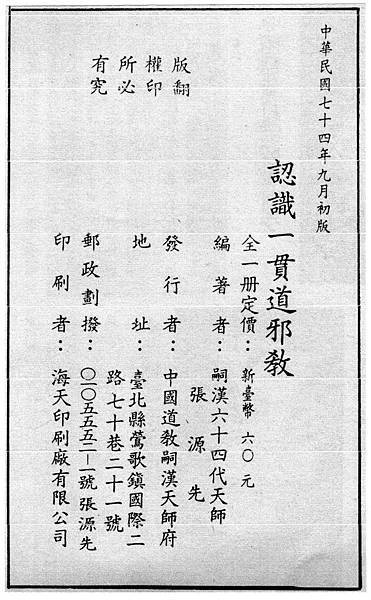 中華民國七十四年九月初版
認識一貫道邪教
全一册定價：新臺幣六〇元
編著者：嗣漢六十四代天師
張源先
發行者：中國道教嗣漢天師府
地址：臺北縣鶯歌鎮國際二
路七十巷二十一號
郵政劃撥：〇一〇五五五二－一號張源先
印刷者：海天印刷廠有限公司
版權所有
翻印必究